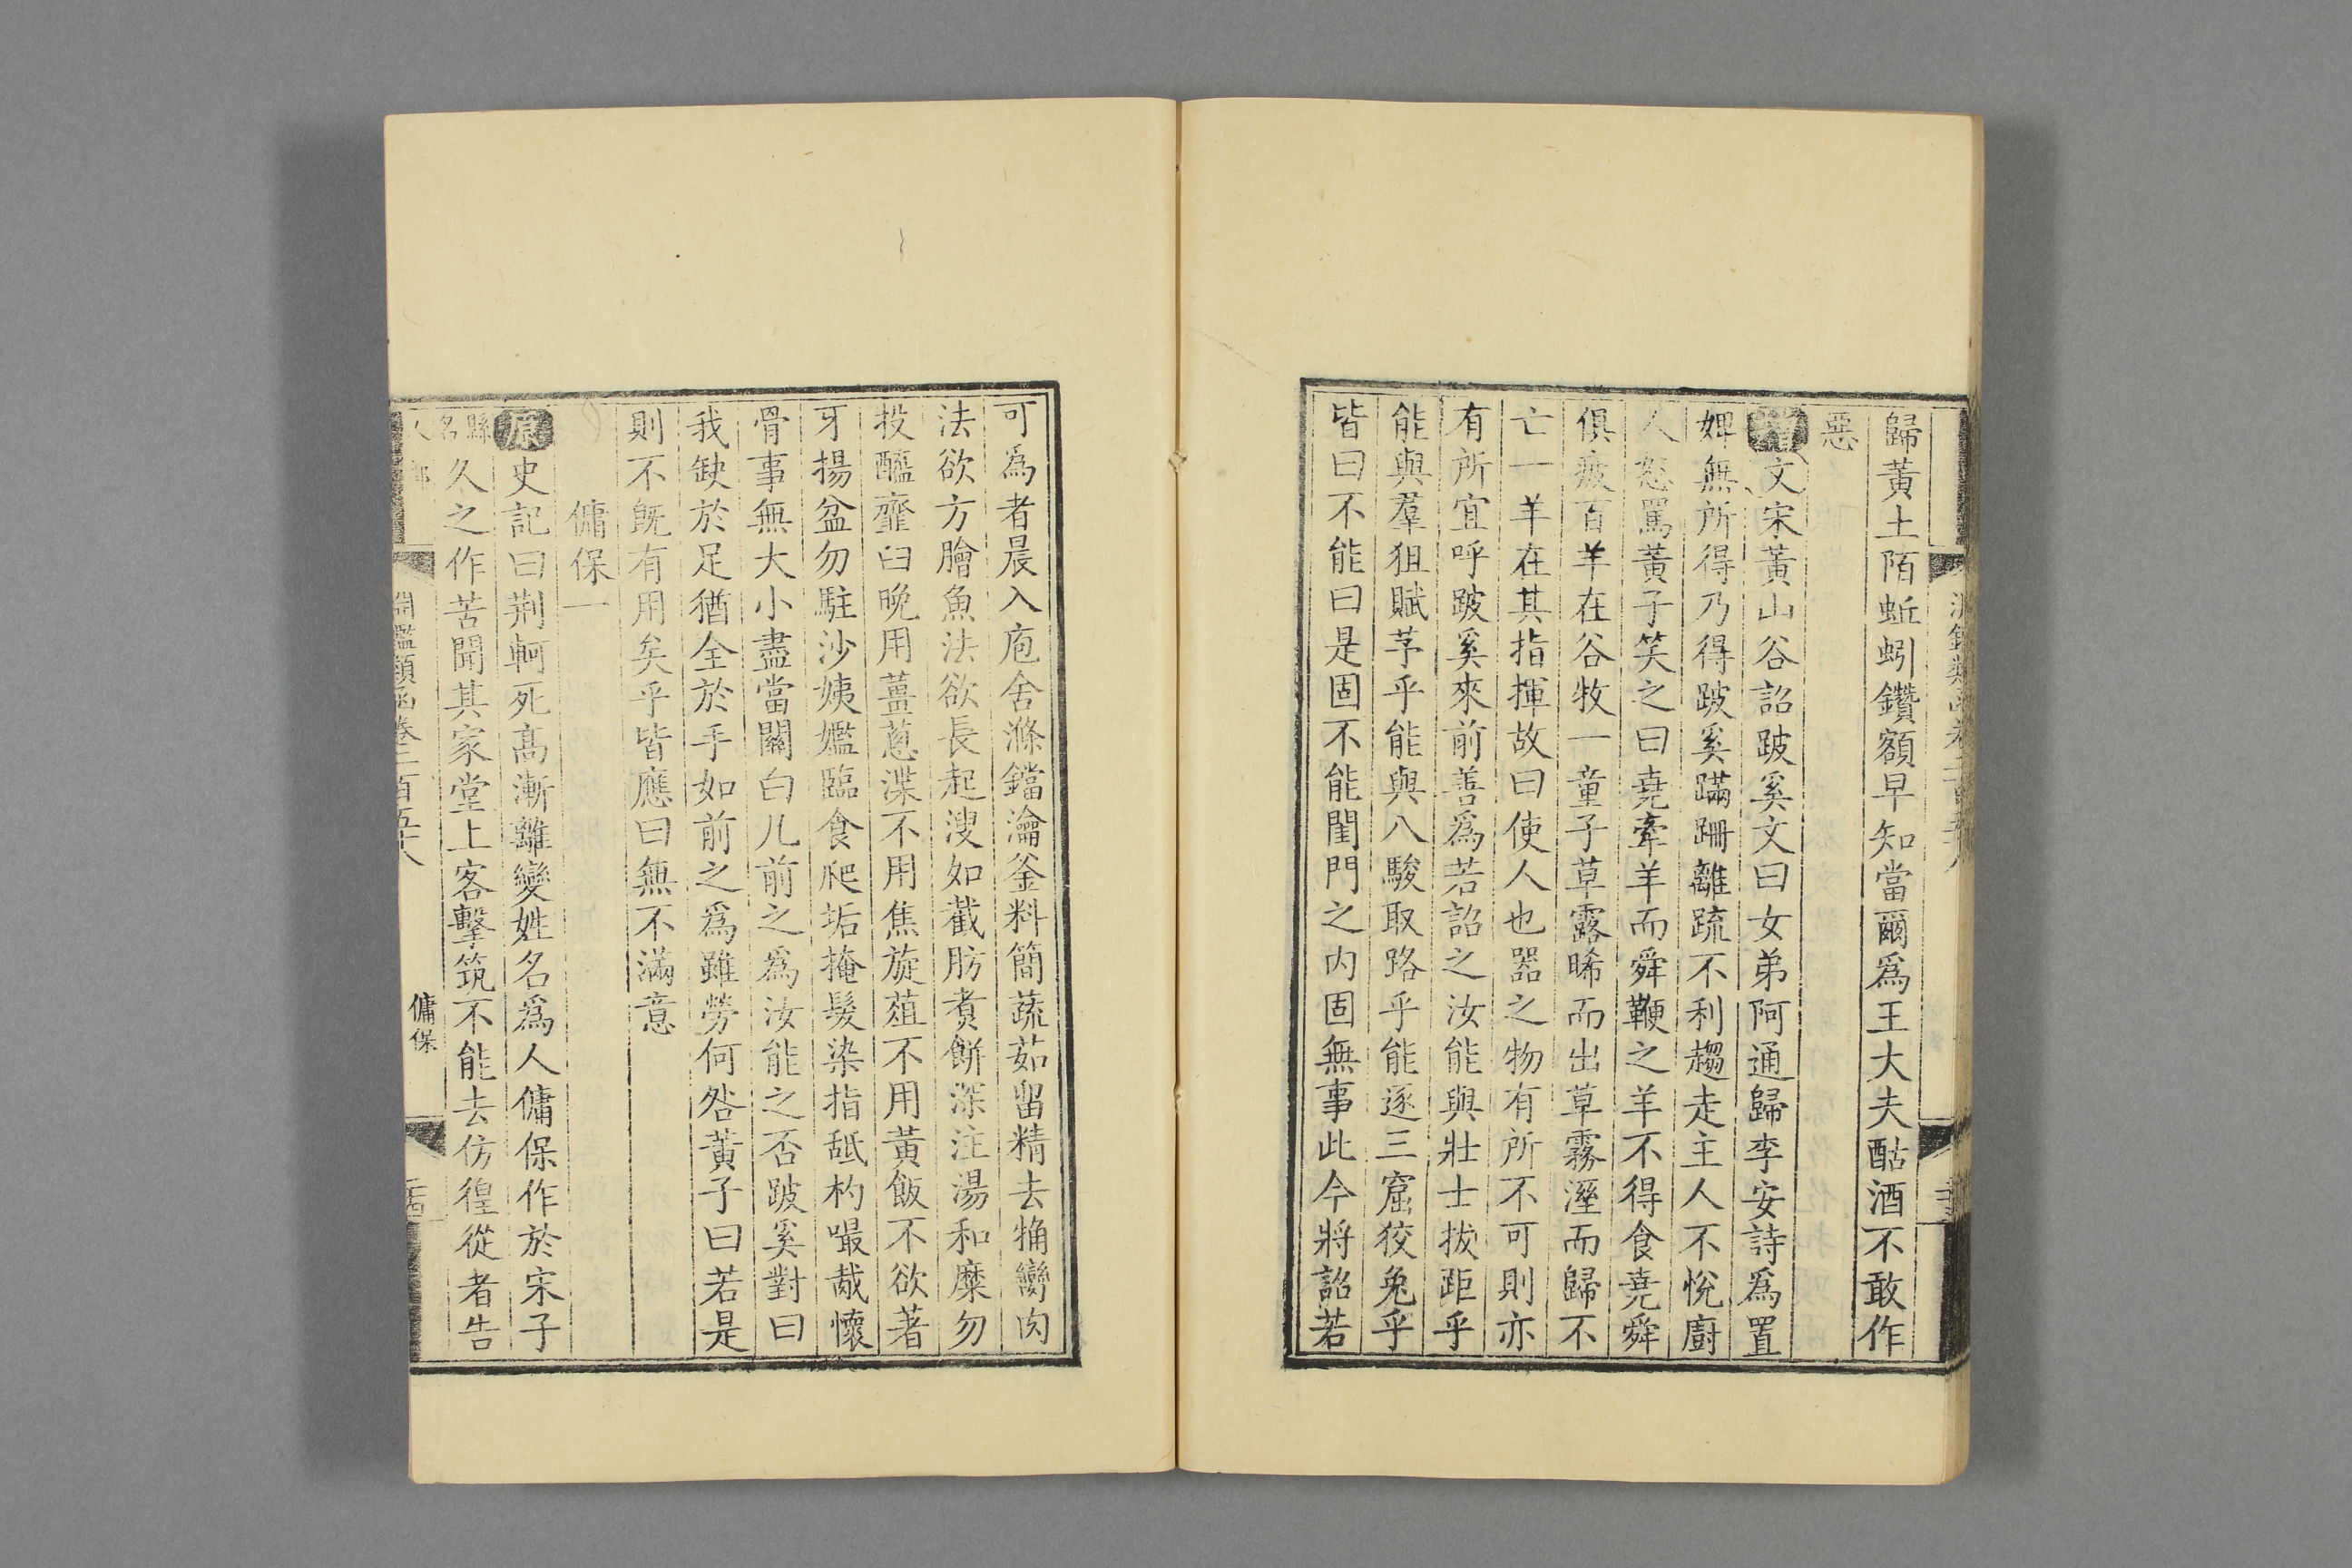 淵鑑類函卷二百五十八
歸黃土陌蚯蚓鑽額早知當爾爲王大夫酤酒不敢作
惡
增文宋黃山谷詔跛奚文曰女弟阿通歸李安詩爲置
婢無所得乃得跛奚蹣跚離疏不利趨走主人不悅廚
人怒罵黃子笑之曰堯牽羊而舜鞭之羊不得食堯舜
俱疲百羊在谷牧一童子草露晞而出草霧溼而歸不
亡一羊在其指揮故曰使人也器之物有所不可則亦
有所宜呼跛奚來前善爲若詔之汝能與壯士拔距乎
能與羣狙賦芧乎能與八駿取路乎能逐三窟狡兔乎
皆曰不能曰是固不能閨門之內固無事此今將詔若
可爲者晨入庖舍滌鐺瀹釜料簡蔬茹留精去觕臠肉
法欲方膾魚法欲長起溲如截肪煮餅深注湯和糜勿
投醯齏臼晩用薑蔥渫不用焦旋葅不用黃飯不欲著
牙揚盆勿駐沙姨嫗臨食爬垢掩髮染指舐杓嘬胾懷
骨事無大小盡當關白几前之爲汝能之否跛奚對曰
我缺於足猶全於手如前之爲雖勞何咎黃子曰若是
則不旣有用矣乎皆應曰無不滿意
傭保一
原史記曰荆軻死高漸離變姓名爲人傭保作於宋子
縣名久之作苦聞其家堂上客擊筑不能去仿徨從者告
人部
淵鑑類函卷二百五十八
傭保